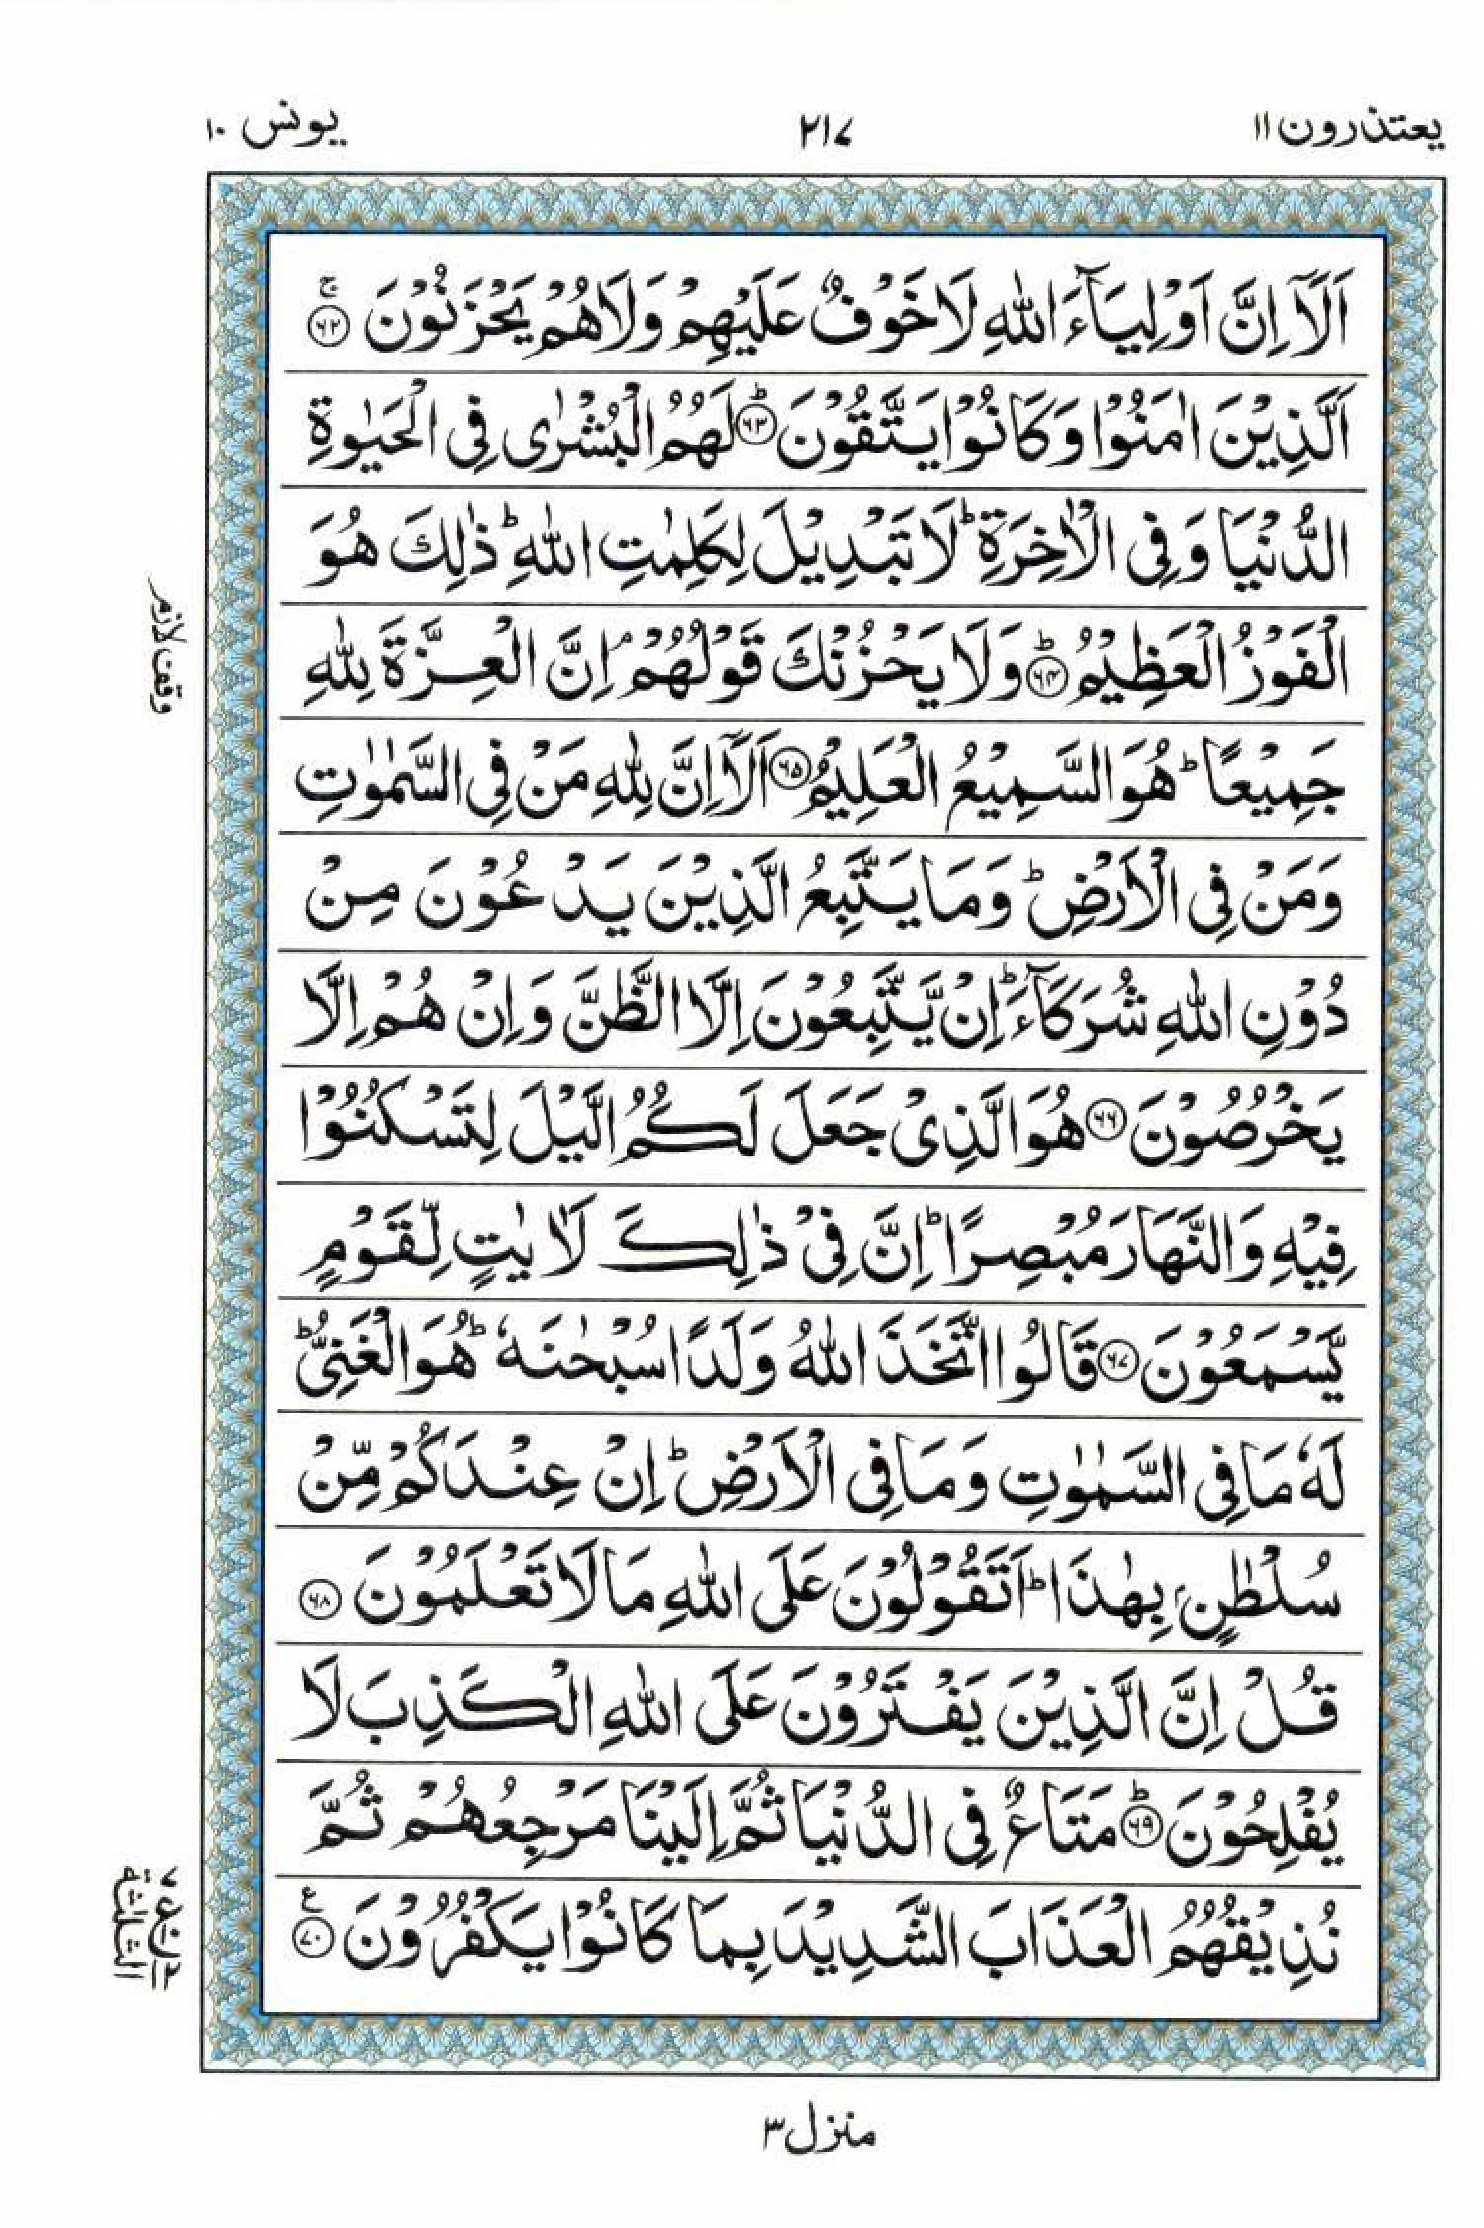 يعتذرون ١١
٢١٧
يونس ١٠
اَلَاۤ اِنَّ اَوْلِيَآءَ اللّٰهِ لَا خَوْفٌ عَلَيْهِمْ وَلَا هُمْ يَحْزَنُوْنَ ۚ﴿۶۲﴾
اَلَّذِيْنَ اٰمَنُوْا وَكَانُوْا يَتَّقُوْنَ ؕ﴿۶۳﴾ لَهُمُ الْبُشْرٰى فِى الْحَيٰوةِ
الدُّنْيَا وَفِى الْاٰخِرَةِ ؕ لَا تَبْدِيْلَ لِكَلِمٰتِ اللّٰهِ ؕ ذٰلِكَ هُوَ
الْفَوْزُ الْعَظِيْمُ ؕ﴿۶۴﴾ وَلَا يَحْزُنْكَ قَوْلُهُمْ ۘ اِنَّ الْعِزَّةَ لِلّٰهِ
جَمِيْعًا ؕ هُوَ السَّمِيْعُ الْعَلِيْمُ ﴿۶۵﴾ اَلَاۤ اِنَّ لِلّٰهِ مَنْ فِى السَّمٰوٰتِ
وَمَنْ فِى الْاَرْضِ ؕ وَمَا يَتَّبِعُ الَّذِيْنَ يَدْعُوْنَ مِنْ
دُوْنِ اللّٰهِ شُرَكَآءَ ؕ اِنْ يَّتَّبِعُوْنَ اِلَّا الظَّنَّ وَاِنْ هُمْ اِلَّا
يَخْرُصُوْنَ ﴿۶۶﴾ هُوَ الَّذِىْ جَعَلَ لَكُمُ الَّيْلَ لِتَسْكُنُوْا
فِيْهِ وَالنَّهَارَ مُبْصِرًا ؕ اِنَّ فِىْ ذٰلِكَ لَاٰيٰتٍ لِّقَوْمٍ
يَّسْمَعُوْنَ ﴿۶۷﴾ قَالُوا اتَّخَذَ اللّٰهُ وَلَدًا سُبْحٰنَهٗ ؕ هُوَ الْغَنِىُّ ؕ
لَهٗ مَا فِى السَّمٰوٰتِ وَمَا فِى الْاَرْضِ ؕ اِنْ عِنْدَكُمْ مِّنْ
سُلْطٰنٍۭ بِهٰذَا ؕ اَتَقُوْلُوْنَ عَلَى اللّٰهِ مَا لَا تَعْلَمُوْنَ ﴿۶۸﴾
قُلْ اِنَّ الَّذِيْنَ يَفْتَرُوْنَ عَلَى اللّٰهِ الْكَذِبَ لَا
يُفْلِحُوْنَ ؕ﴿۶۹﴾ مَتَاعٌ فِى الدُّنْيَا ثُمَّ اِلَيْنَا مَرْجِعُهُمْ ثُمَّ
نُذِيْقُهُمُ الْعَذَابَ الشَّدِيْدَ بِمَا كَانُوْا يَكْفُرُوْنَ ﴿۷۰﴾ ع
وقف لازم
الثلثة
منزل ٣